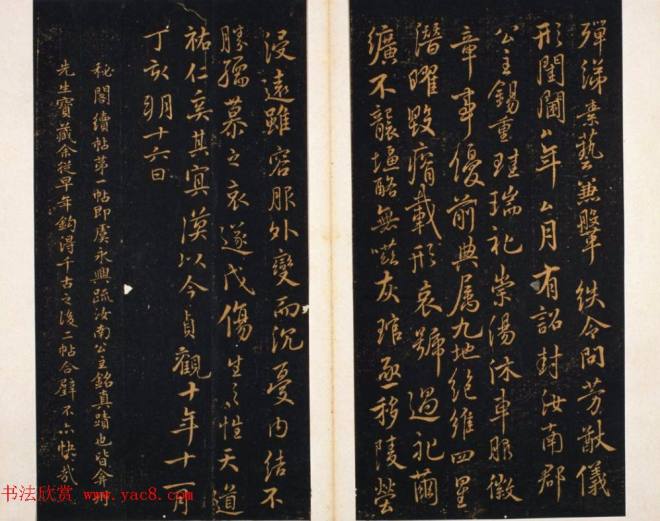 殫綈素藝兼鞶紩令問芳猷儀
形閨閫厶年厶月有詔封汝南郡
公主錫重珪瑞祀崇湯沐車服徽
章事優前典屬九地絕維四星
潛曜毀瘠載形哀號過祀繭
纊不襲塩酪無嗞灰琯亟移陵塋
浸遠雖容服外變而沉憂內結不
勝孺慕之哀遂戊傷生之性天道
祐仁奚其冥漠以今貞觀十年十一月
丁亥朔十六日
秘閣續帖第一帖即虞永興疏汝南公主銘真蹟也皆弇州
先生寶藏余從早年鈎得千古之後二帖合璧不亦快哉
书法欣赏 www.yac8.com